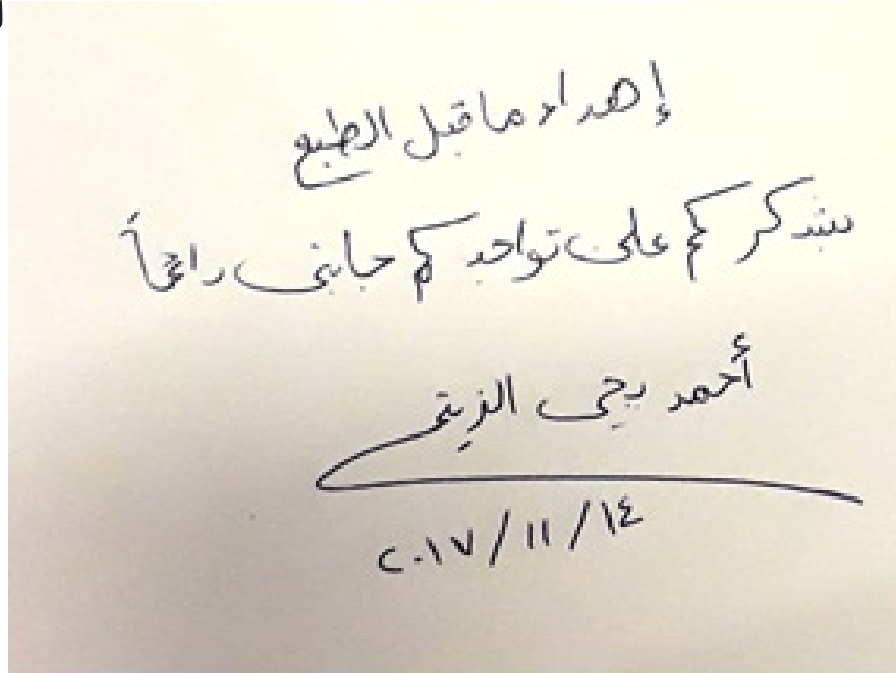 إهداء ما قبل الطبع
بشكركم على تواجدكم جانبى دائماً
أحمد يحيى الزيتى
٢٠١٧/١١/١٤